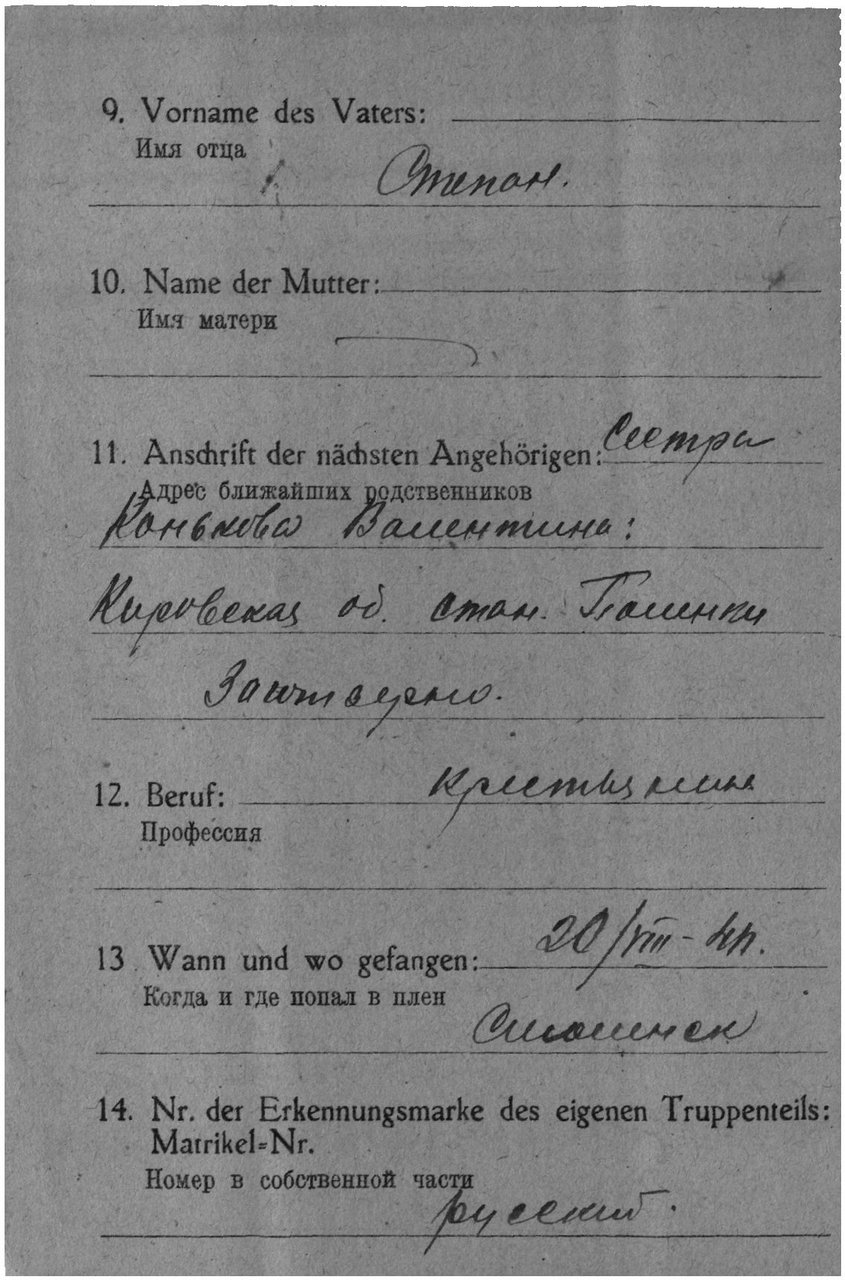 9. Vorname des Vaters:
Имя отца
Степан.
10. Name der Mutter:
Имя матери
11. Anschrift der nächsten Angehörigen: Сестра
Адрес ближайших родственников
Конькова Валентина:
Кировская об. стан. Поленки
12. Beruf: крестьянин
Профессия
13. Wann und wo gefangen: 20/VIII-41.
Когда и где попал в плен
Смоленск
14. Nr. der Erkennungsmarke des eigenen Truppenteils:
Matrikel=Nr.
Номер в собственной части
русский.